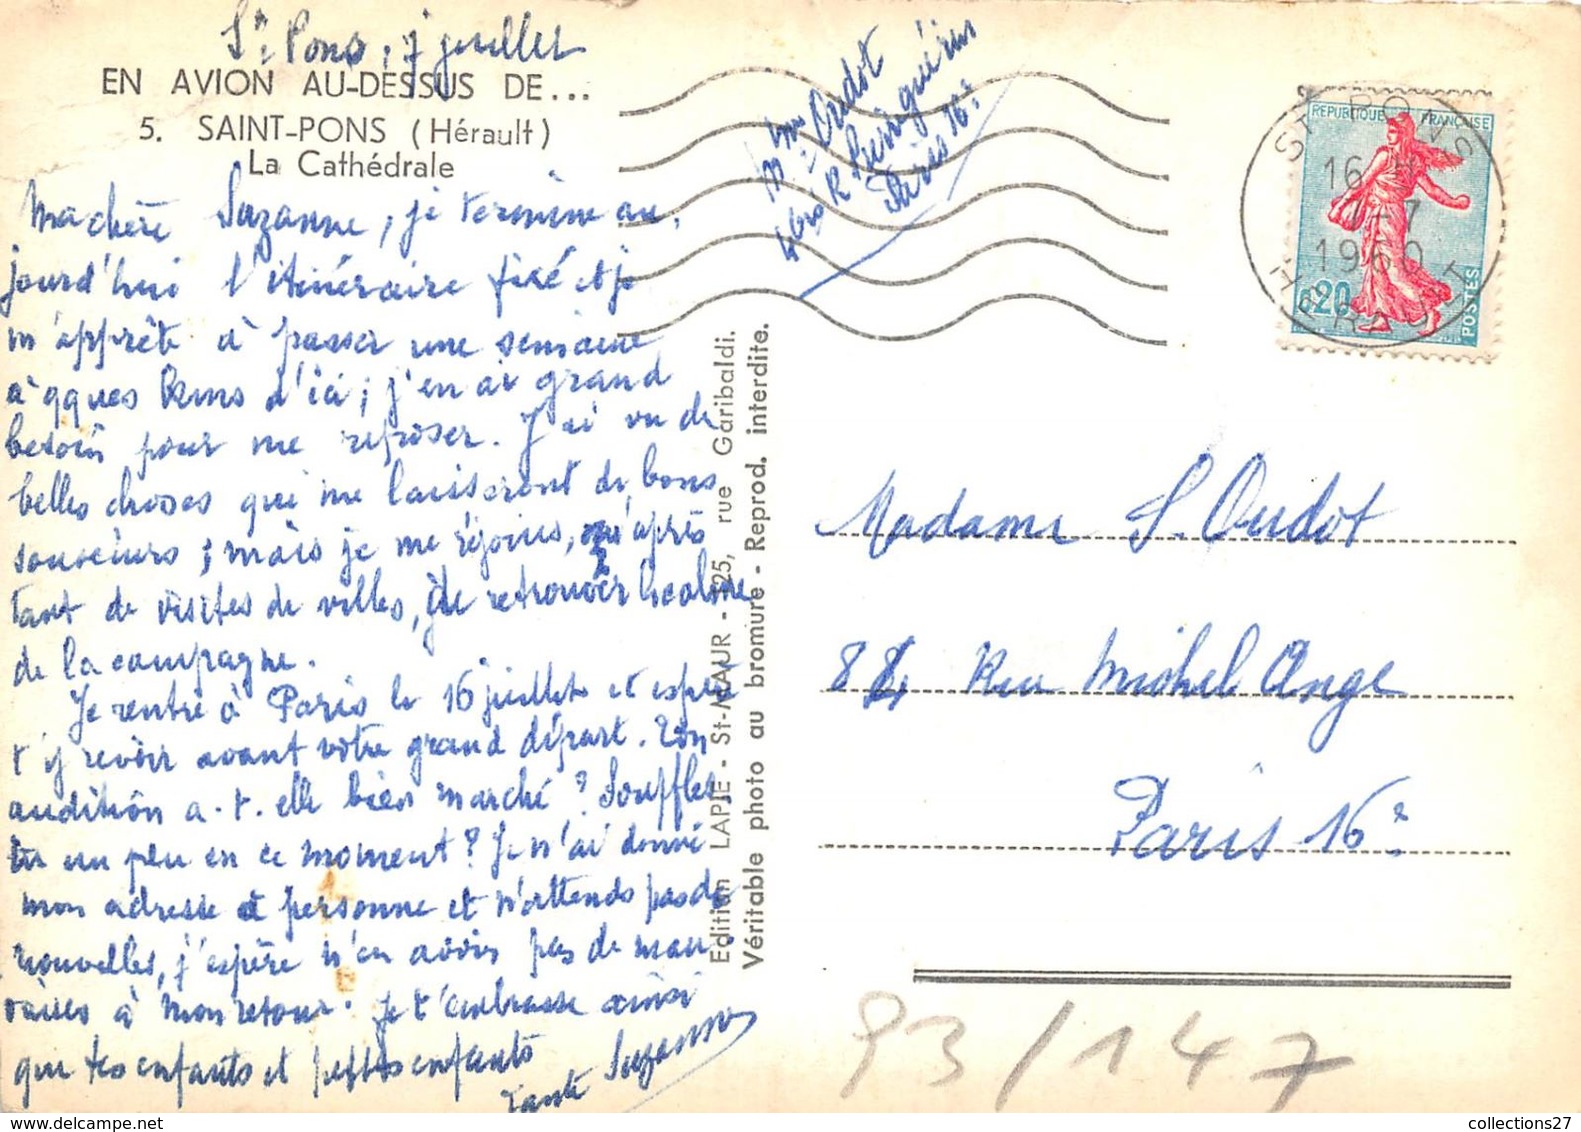 St Pons, 7 juillet
EN AVION AU-DESSUS DE...
5. SAINT-PONS (Hérault)
La Cathédrale
Ma chère Suzanne, je termine au-
jourd'hui l'itinéraire fixé et je
m'apprête à passer une semaine
à qques kms d'ici ; j'en ai grand
besoin pour me reposer. J'ai vu de
belles choses qui me laisseront de bons
souvenirs ; mais je me réjouis, qu'après
tant de visites de villes, de retrouver le calme
de la campagne.
Je rentre à Paris le 16 juillet et espère
t'y revoir avant votre grand départ. Ton
audition a-t-elle bien marché ? Souffles
tu un peu en ce moment ? Je n'ai donné
mon adresse à personne et n'attends pas de
nouvelles, j'espère n'en avoir pas de mau-
vaises à mon retour. Je t'embrasse ainsi
que tes enfants et petits enfants
Tante Suzanne
Edition LAPIE - St-MAUR - 125, rue Garibaldi.
Véritable photo au bromure - Reprod. interdite.
Mme Oudot
R
Paris 16e
ST PONS
16 H
7-7
1960
HERAULT
REPUBLIQUE FRANÇAISE
0,20
POSTES
Madame S. Oudot
Rue Michel Ange
Paris 16e
93/147
collections27